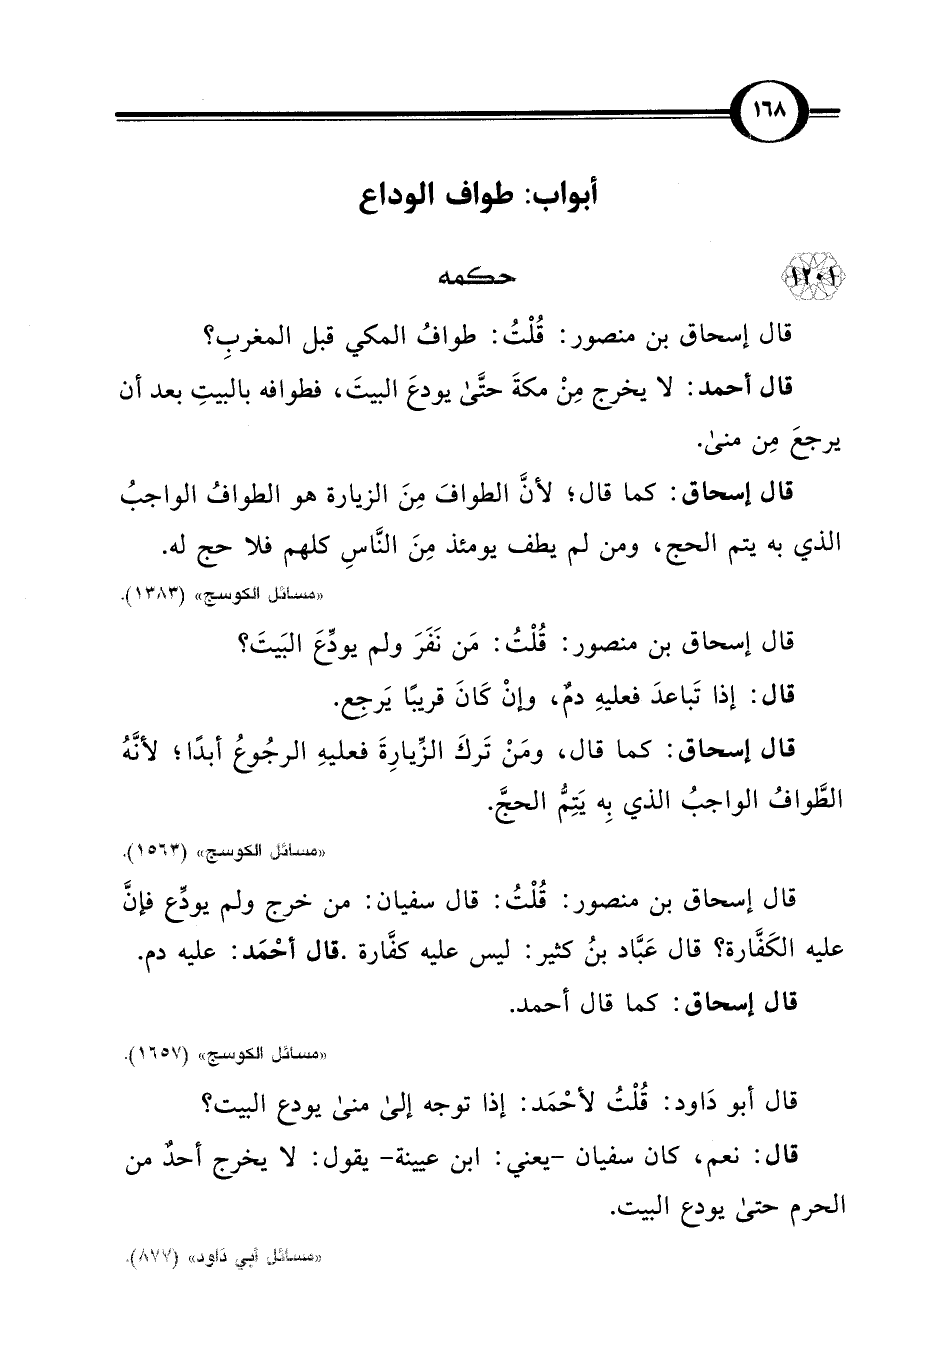 ١٦٨
أبواب: طواف الوداع
١٢٠١
حكمه
قال إسحاق بن منصور: قُلْتُ: طوافُ المكي قبل المغربِ؟
قال أحمد: لا يخرج مِنْ مكةَ حتَّىٰ يودعَ البيتَ، فطوافه بالبيتِ بعد أن
يرجعَ مِن منىٰ.
قال إسحاق: كما قال؛ لأنَّ الطوافَ مِنَ الزيارة هو الطوافُ الواجبُ
الذي به يتم الحج، ومن لم يطف يومئذ مِنَ النَّاسِ كلهم فلا حج له.
«مسائل الكوسج» (١٣٨٣).
قال إسحاق بن منصور: قُلْتُ: مَن نَفَرَ ولم يودِّعَ البَيتَ؟
قال: إذا تَباعدَ فعليهِ دمٌ، وإنْ كَانَ قريبًا يَرجِع.
قال إسحاق: كما قال، ومَنْ تَركَ الزِّيارةَ فعليهِ الرجُوعُ أبدًا؛ لأنَّهُ
الطَّوافُ الواجبُ الذي بِه يَتِمُّ الحجَّ.
«مسائل الكوسج» (١٥٦٣).
قال إسحاق بن منصور: قُلْتُ: قال سفيان: من خرج ولم يودِّع فإنَّ
عليه الكَفَّارة؟ قال عَبَّاد بنُ كثير: ليس عليه كفَّارة .قال أحْمَد: عليه دم.
قال إسحاق: كما قال أحمد.
«مسائل الكوسج» (١٦٥٧).
قال أبو دَاود: قُلْتُ لأحْمَد: إذا توجه إلىٰ منىٰ يودع البيت؟
قال: نعم، كان سفيان -يعني: ابن عيينة- يقول: لا يخرج أحدٌ من
الحرم حتىٰ يودع البيت.
«مسائل أبي دَاود» (٨٧٧).